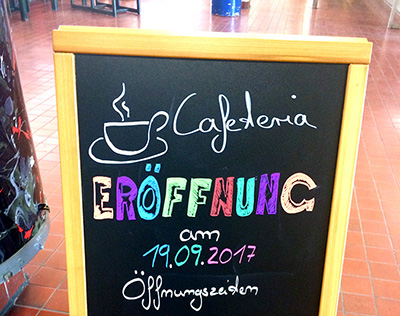 Cafeteria
ERÖFFNUNG
am
19.09.2017
Öffnungszeiten